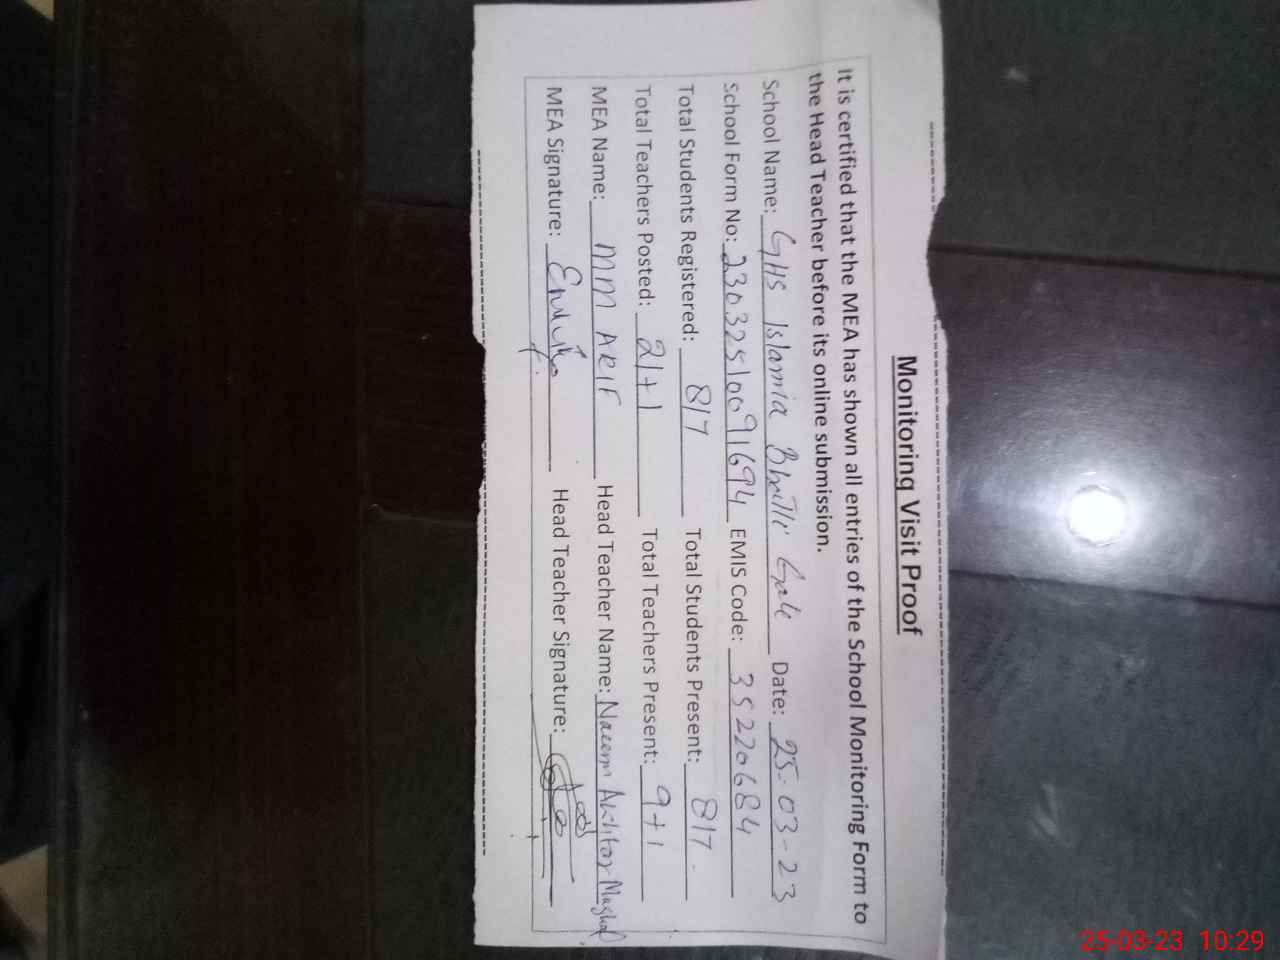 Monitoring Visit Proof
It is certified that the MEA has shown all entries of the School Monitoring Form to
the Head Teacher before its online submission.
School Name: GHS Islamia Bhatti Gate Date: 25-03-23
School Form No: 23032510091694 EMIS Code: 35220684
Total Students Registered: 817 Total Students Present: 817.
Total Teachers Posted: 21+1 Total Teachers Present: 9+1
MEA Name: MM ARIF Head Teacher Name: Naeem Akhtar Mughal
MEA Signature: Head Teacher Signature:
25-03-23 10:29